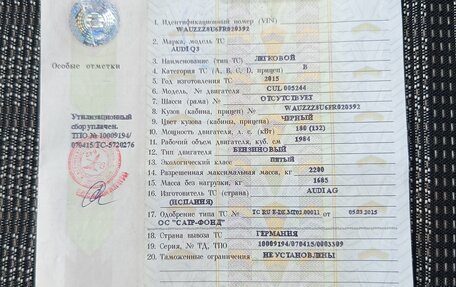 Особые отметки
Утилизационный
сбор уплачен.
ТПО № 10009194/
070415/ТС-5720276
1. Идентификационный номер (VIN)
WAUZZZ8U6FR020392
2. Марка, модель ТС
AUDI Q3
3. Наименование (тип ТС) ЛЕГКОВОЙ
4. Категория ТС (A, B, C, D, прицеп) B
5. Год изготовления ТС 2015
6. Модель, № двигателя CUL 005244
7. Шасси (рама) № ОТСУТСТВУЕТ
8. Кузов (кабина, прицеп) № WAUZZZ8U6FR020392
9. Цвет кузова (кабины, прицепа) ЧЕРНЫЙ
10. Мощность двигателя, л. с. (кВт) 180 (132)
11. Рабочий объем двигателя, куб. см 1984
12. Тип двигателя БЕНЗИНОВЫЙ
13. Экологический класс ПЯТЫЙ
14. Разрешенная максимальная масса, кг 2200
15. Масса без нагрузки, кг 1685
16. Изготовитель ТС (страна) AUDI AG
(ИСПАНИЯ)
17. Одобрение типа ТС № ТС RU E-DE.МТ02.00011 от 05.03.2015
ОС "САТР-ФОНД"
18. Страна вывоза ТС ГЕРМАНИЯ
19. Серия, № ТД, ТПО 10009194/070415/0003309
20. Таможенные ограничения НЕ УСТАНОВЛЕНЫ